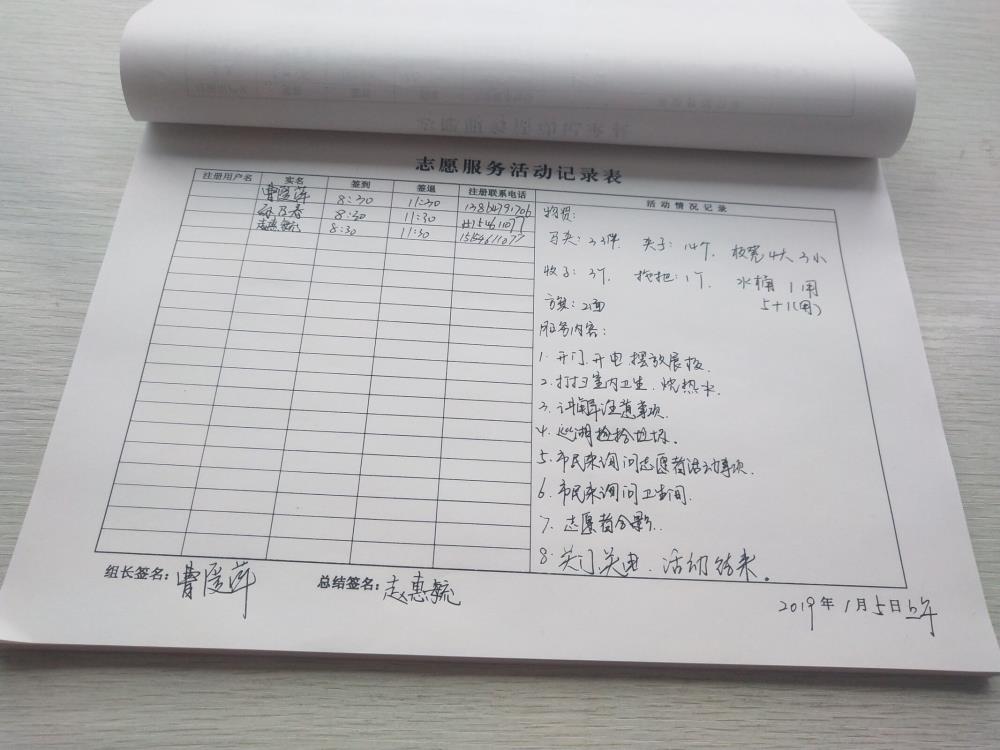 志愿服务活动记录表
注册用户名 实名 签到 签退 注册联系电话 活动情况记录
曹爱萍 8:30 11:30
8:30 11:30
赵惠毓 8:30 11:30 15154611077
物资:
马夹:33件 夹子:14个 板凳4大3小
3个. 拖把:1个. 水桶 1用
5+1(用)
方旗:2面
服务内容:
1.开门.开电.摆放展板.
2.打扫室内卫生.烧热水.
3.讲解注意事项.
4.巡湖捡拾垃圾.
5.市民来询问志愿者活动事项.
6.市民来询问卫生间.
7.志愿者合影.
8.关门关电.活动结束.
组长签名:曹爱萍 总结签名:赵惠毓
2019年1月5日上午